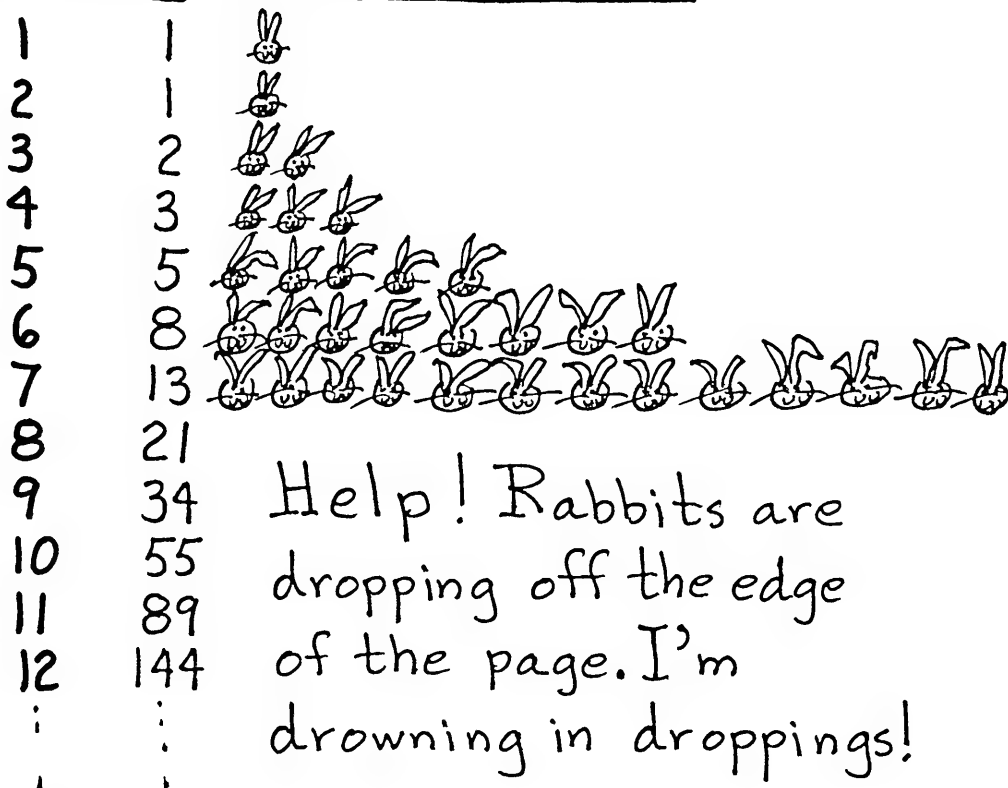 1 1
2 1
3 2
4 3
5 5
6 8
7 13
8 21
9 34
10 55
11 89
12 144
Help! Rabbits are
dropping off the edge
of the page. I'm
drowning in droppings!